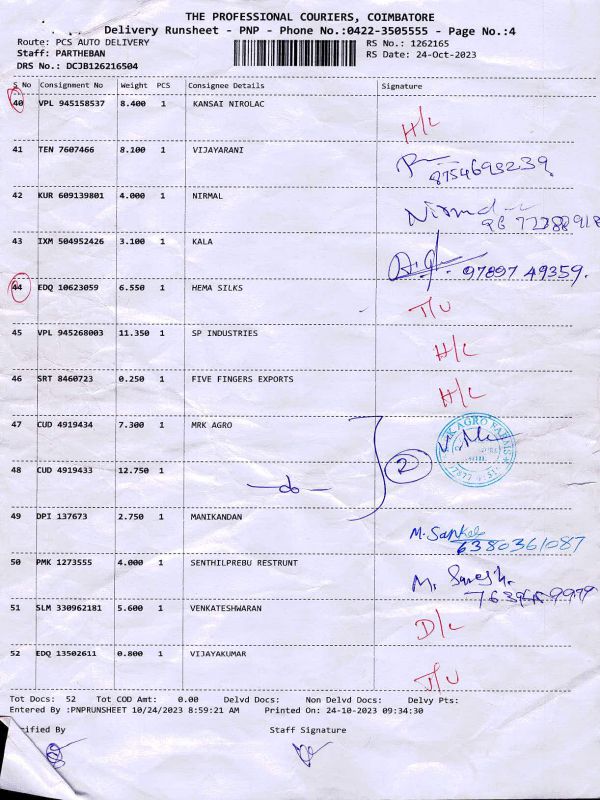 THE PROFESSIONAL COURIERS, COIMBATORE
Delivery Runsheet - PNP - Phone No.:0422-3505555 - Page No.:4
Route: PCS AUTO DELIVERY RS No.: 1262165
Staff: PARTHEBAN RS Date: 24-Oct-2023
DRS No.: DCJB126216504
S No Consignment No Weight PCS Consignee Details Signature
40 VPL 945158537 8.400 1 KANSAI NIROLAC H/L
41 TEN 7607466 8.100 1 VIJAYARANI
8754693239
42 KUR 609139801 4.000 1 NIRMAL Nirmal
43 IXM 504952426 3.100 1 KALA
97897 49359.
44 EDQ 10623059 6.550 1 HEMA SILKS T/U
45 VPL 945268003 11.350 1 SP INDUSTRIES H/L
46 SRT 8460723 0.250 1 FIVE FINGERS EXPORTS H/L
47 CUD 4919434 7.300 1 MRK AGRO
48 CUD 4919433 12.750 1 -do- 2
49 DPI 137673 2.750 1 MANIKANDAN M. Sanket
6380361087
50 PMK 1273555 4.000 1 SENTHILPREBU RESTRUNT M. Suresh.
51 SLM 330962181 5.600 1 VENKATESHWARAN D/L
52 EDQ 13502611 0.800 1 VIJAYAKUMAR T/U
Tot Docs: 52 Tot COD Amt: 0.00 Delvd Docs: Non Delvd Docs: Delvy Pts:
Entered By :PNPRUNSHEET 10/24/2023 8:59:21 AM Printed On: 24-10-2023 09:34:30
ified By Staff Signature